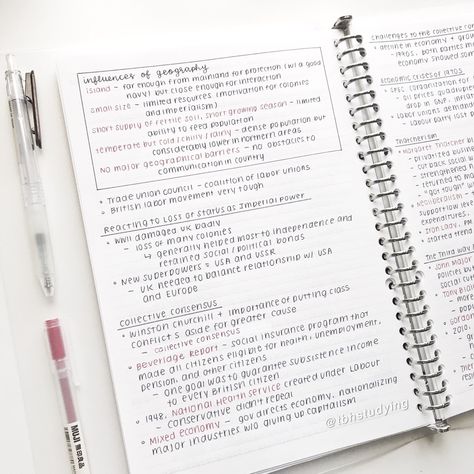 influences of geography
island - far enough from mainland for protection (w/ a good
navy) but close enough for interaction
small size - limited resources (motivation for colonies
and imperialism)
short supply of fertile soil, short growing season - limited
ability to feed population
temperate but cold / chilly / rainy - dense population but
considerably lower in northern areas
No major geographical barriers - no obstacles to
communication in country
• Trade union council - coalition of labor unions
• British labor movement very tough
Reacting to Loss of status as imperial power
• WWII damaged UK badly
- loss of many colonies
↳ generally helped most to independence and
retained social / political bonds
• New superpowers = USA and USSR
- UK needed to balance relationship w/ USA
and Europe
collective consensus
• Winston Churchill + importance of putting class
conflicts aside for greater cause
- collective consensus
• Beverage Report - social insurance program that
made all citizens eligible for health, unemployment,
pension, and other citizens
- one goal was to guarantee subsistence income
to every British citizen
• 1948, National Health Service created under Labour
- conservative didn't repeal
• Mixed economy - gov directs economy, nationalizing
major industries w/o giving up capitalism
@tbhstudying
challenges to the collective con
• decline in economy + grow
- 1970s, both parties
economy showed
Economic crises of 1970s
• OPEC
- oil prices
drop in GNP, inflation
• Labor unions demand
- Labour party lost
Thatcherism
• Margaret Thatcher
- privatized busin
- cut back social
- strengthened
- returned to
"got th
• Neoliberalism
support low
expenditures
• Iron Lady, PM
- started trend
The third way
• John Major
• Tony Bla
• Gordon
MUJI 無印良品